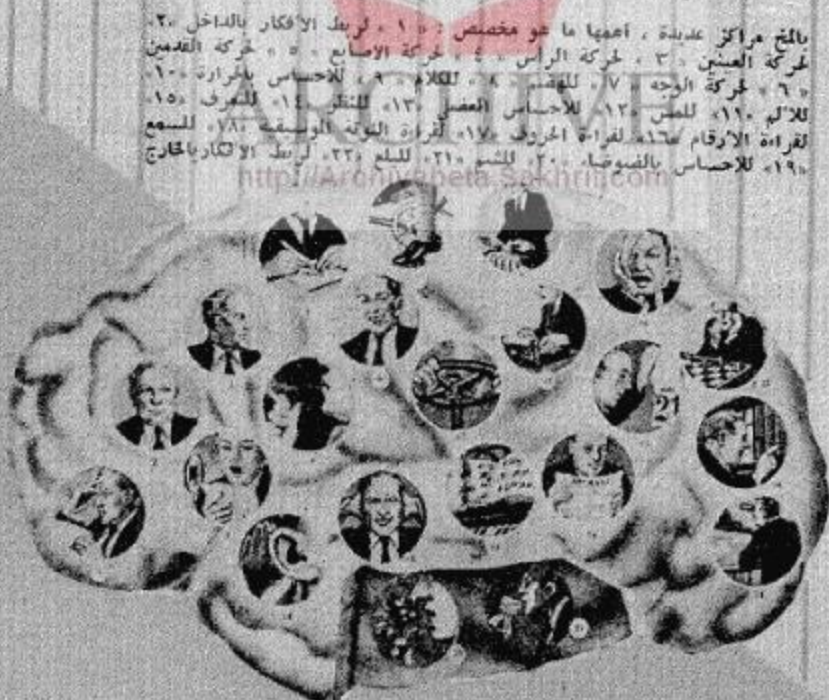 بالمخ مراكز عديدة ، أهمها ما هو مخصص : « ١ » لربط الأفكار بالداخل «٢»
لحركة العينين « ٣ » لحركة الرأس « ٤ » لحركة الاصابع « ٥ » لحركة القدمين
« ٦ » لحركة الوجه « ٧ » للهضم « ٨ » للكلام « ٩ » للاحساس بالحرارة «١٠»
للألم «١١» للمس «١٢» للاحساس العضلي «١٣» للنظر «١٤» للتعرف «١٥»
لقراءة الأرقام «١٦» لقراءة الحروف «١٧» لقراءة النوتة الموسيقية «١٨» للسمع
«١٩» للاحساس بالضوضاء «٢٠» للشم «٢١» للبلع «٢٢» لربط الافكار بالخارج
ARCHIVE
http://Archivebeta.Sakhrit.com
21